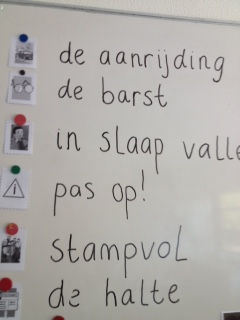 de aanrijding
de barst
in slaap valle
pas op!
stampvol
de halte